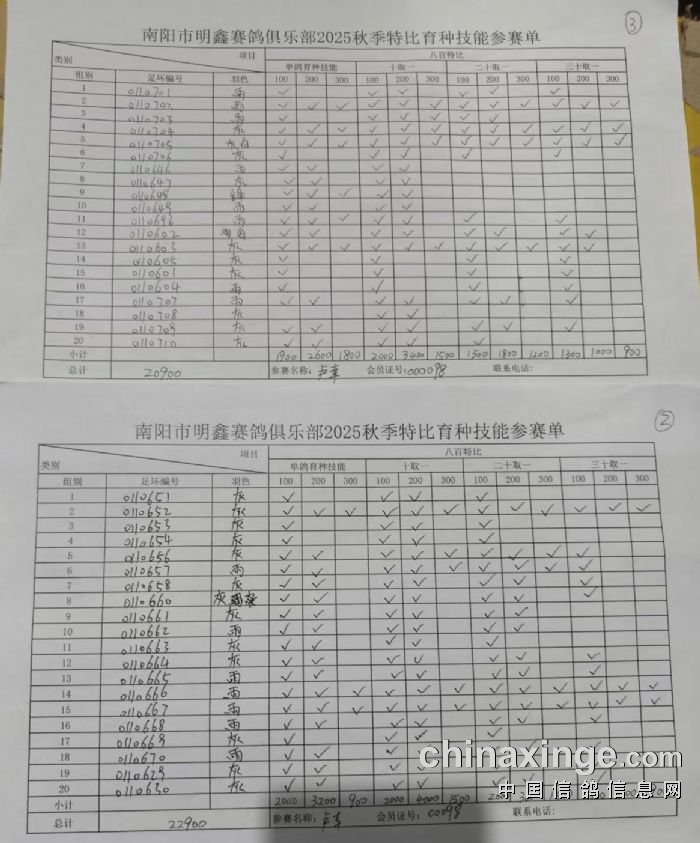 ③
南阳市明鑫赛鸽俱乐部2025秋季特比育种技能参赛单
类别 项目 八百特比
单鸽育种技能 十取一 二十取一 三十取一
组别 足环编号 羽色 100 200 300 100 200 300 100 200 300 100 200 300
1 0110701 雨 ✓ ✓ ✓ ✓ ✓ ✓
2 0110702 雨 ✓ ✓ ✓ ✓ ✓ ✓ ✓ ✓ ✓ ✓ ✓ ✓
3 0110703 雨 ✓ ✓ ✓ ✓ ✓ ✓
4 0110704 灰 ✓ ✓ ✓ ✓ ✓ ✓ ✓ ✓ ✓ ✓ ✓ ✓
5 0110705 灰白 ✓ ✓ ✓ ✓ ✓ ✓ ✓ ✓ ✓ ✓ ✓ ✓
6 0110706 灰 ✓ ✓ ✓ ✓ ✓
7 0110646 雨 ✓ ✓ ✓ ✓
8 0110647 灰 ✓ ✓ ✓ ✓
9 0110648 ✓ ✓ ✓ ✓ ✓
10 0110649 雨 ✓ ✓ ✓ ✓
11 0110696 雨 ✓ ✓ ✓ ✓ ✓ ✓ ✓
12 0110602 ✓ ✓ ✓ ✓ ✓ ✓ ✓ ✓
13 0110603 灰 ✓ ✓ ✓ ✓ ✓ ✓ ✓ ✓ ✓ ✓ ✓ ✓
14 0110605 灰 ✓ ✓ ✓ ✓
15 0110601 灰 ✓ ✓ ✓ ✓
16 0110604 雨 ✓ ✓ ✓ ✓
17 0110707 雨 ✓ ✓ ✓ ✓ ✓ ✓ ✓
18 0110708 灰 ✓ ✓
19 0110709 灰 ✓ ✓ ✓ ✓ ✓ ✓ ✓
20 0110710 灰 ✓ ✓ ✓ ✓ ✓
小计 1900 2600 1800 2000 3400 1500 1500 1800 1200 1300 1000 900
总计 20900 参赛名称：卢章 会员证号：000098 联系电话：
②
南阳市明鑫赛鸽俱乐部2025秋季特比育种技能参赛单
类别 项目 八百特比
单鸽育种技能 十取一 二十取一 三十取一
组别 足环编号 羽色 100 200 300 100 200 300 100 200 300 100 200 300
1 0110651 灰 ✓ ✓ ✓ ✓
2 0110652 灰 ✓ ✓ ✓ ✓ ✓ ✓ ✓ ✓ ✓ ✓ ✓ ✓
3 0110653 灰 ✓ ✓ ✓ ✓
4 0110654 灰 ✓ ✓ ✓ ✓
5 0110656 灰 ✓ ✓ ✓ ✓ ✓ ✓ ✓ ✓ ✓
6 0110657 雨 ✓ ✓ ✓ ✓ ✓ ✓ ✓ ✓ ✓
7 0110658 灰 ✓ ✓ ✓ ✓ ✓ ✓ ✓
8 0110660 灰 ✓ ✓ ✓ ✓ ✓ ✓ ✓
9 0110661 灰 ✓ ✓ ✓ ✓ ✓ ✓
10 0110662 雨 ✓ ✓ ✓ ✓ ✓ ✓
11 0110663 灰 ✓ ✓ ✓ ✓
12 0110664 灰 ✓ ✓ ✓ ✓ ✓ ✓ ✓
13 0110665 雨 ✓ ✓ ✓ ✓ ✓ ✓ ✓
14 0110666 雨 ✓ ✓ ✓ ✓ ✓ ✓ ✓ ✓ ✓ ✓ ✓ ✓
15 0110667 雨 ✓ ✓ ✓ ✓ ✓ ✓ ✓ ✓ ✓ ✓ ✓ ✓
16 0110668 雨 ✓ ✓ ✓ ✓ ✓ ✓ ✓
17 0110669 灰 ✓ ✓ ✓ ✓
18 0110670 雨 ✓ ✓ ✓ ✓
19 0110629 灰 ✓ ✓ ✓ ✓
20 0110630 灰 ✓ ✓ ✓ ✓
小计 2000 3200 900 2000 4000 1500
总计 22900 参赛名称：卢章 会员证号：00098 联系电话：
chinaxinge.com
中国信鸽信息网